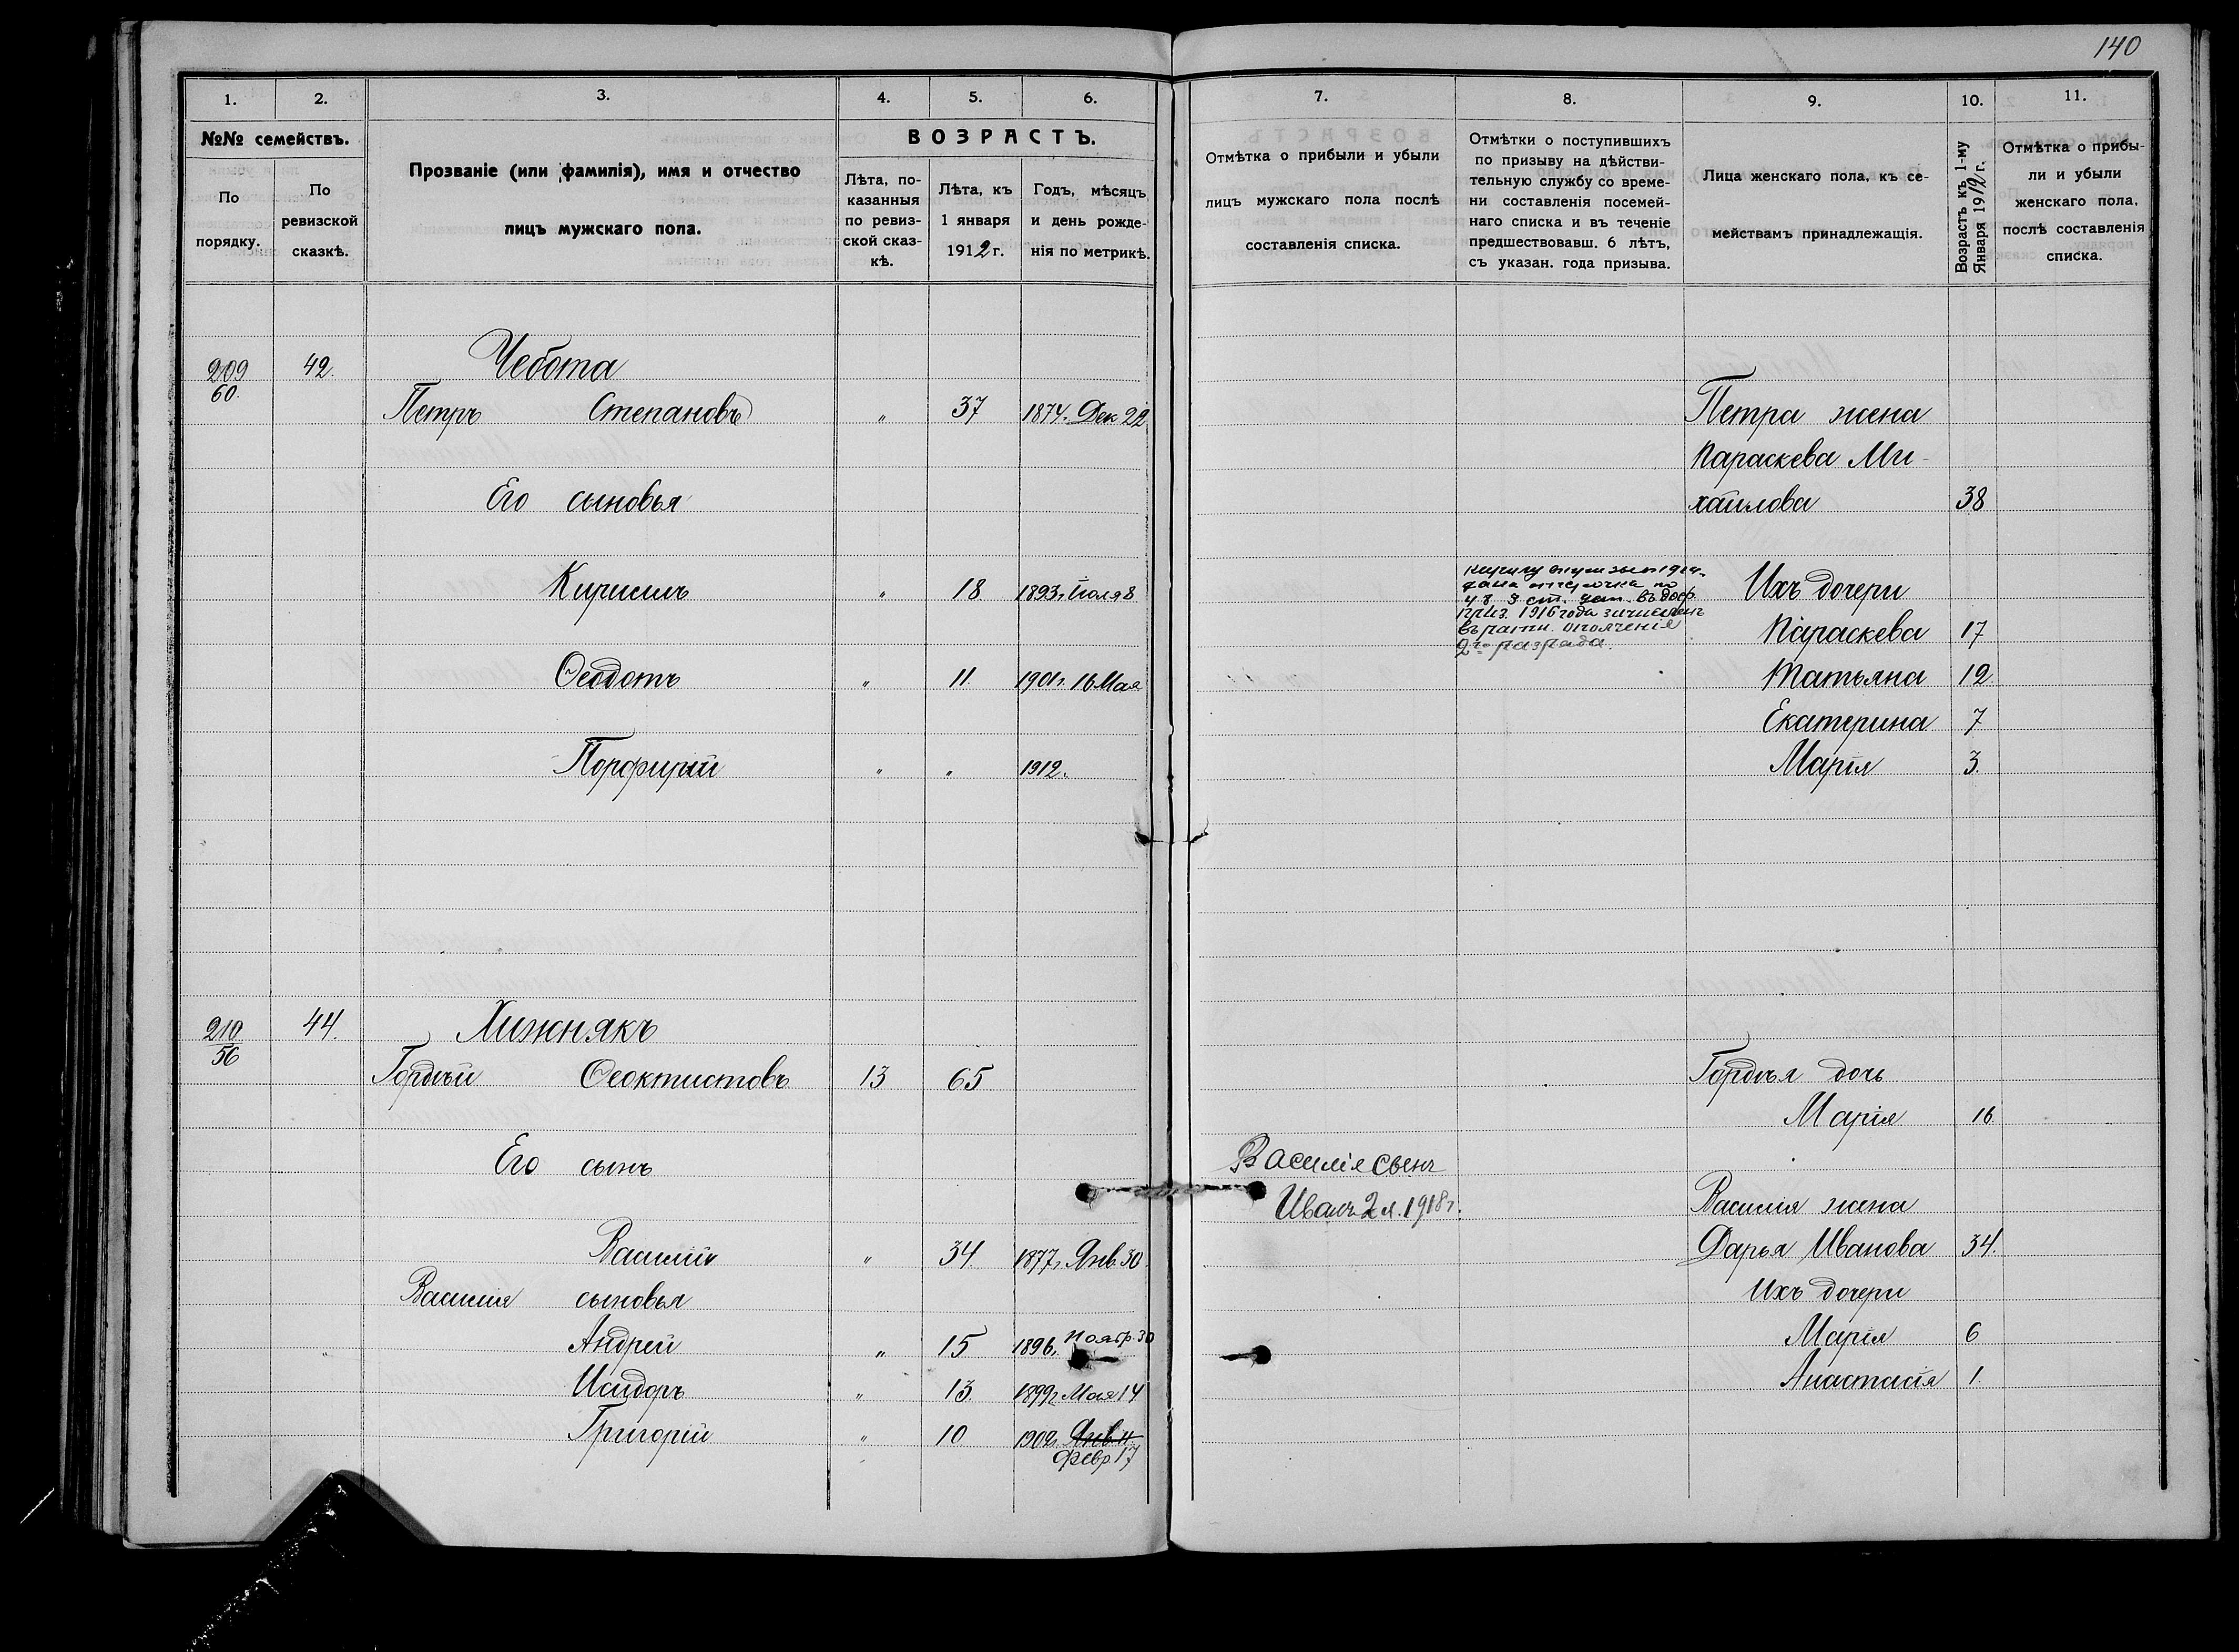 140
1.
2.
3.
4.
5.
6.
№№ семействъ.
По порядку.
По ревизской сказкѣ.
Прозваніе (или фамилія), имя и отчество
лицъ мужскаго пола.
ВОЗРАСТЪ.
Лѣта, по-
казанныя
по ревиз-
ской сказ-
кѣ.
Лѣта, къ
1 января
1912 г.
Годъ, мѣсяцъ
и день рожде-
нія по метрикѣ.
209 42. Чебота
60.
Петръ Степановъ " 37 1874 г. Дек 22
Его сыновья
Кириллъ " 18 1893 г. Іюля 8
Ѳеодотъ " 11. 1901 г. 16 Мая
Порфирій " " 1912.
210 44. Хижнякъ
56
Гордѣй Ѳеоктистовъ 13 65
Его сынъ
Василій " 34 1877 г. Янв. 30
Василія сыновья
Андрей " 15 1896 г. Ноябр. 30
Исидоръ " 13. 1899 г. Мая 14
Григорій " 10 1902 г. Янв. 11
Февр. 17
7.
8.
9.
10.
11.
Отмѣтка о прибыли и убыли
лицъ мужскаго пола послѣ
составленія списка.
Отмѣтки о поступившихъ
по призыву на дѣйстви-
тельную службу со време-
ни составленія посемей-
наго списка и въ теченіе
предшествовавш. 6 лѣтъ,
съ указан. года призыва.
Лица женскаго пола, къ се-
мействамъ принадлежащія.
Возрастъ къ 1-му
Января 1912 г.
Отмѣтка о прибы-
ли и убыли
женскаго пола,
послѣ составленія
списка.
Петра жена
Параскева Ми-
хаилова 38
дана отсрочка по
ст. въ доср.
приз. 1916 года зачисленъ
въ ратн. ополченія
2го разряда.
Ихъ дочери
Параскева 17
Татьяна 12.
Екатерина 7
Марія 3.
Гордѣя дочь
Марія 16
Василія сынъ
Иванъ 2 л. 1918 г.
Василія жена
Дарья Иванова 34.
Ихъ дочери
Марія 6
Анастасія 1.